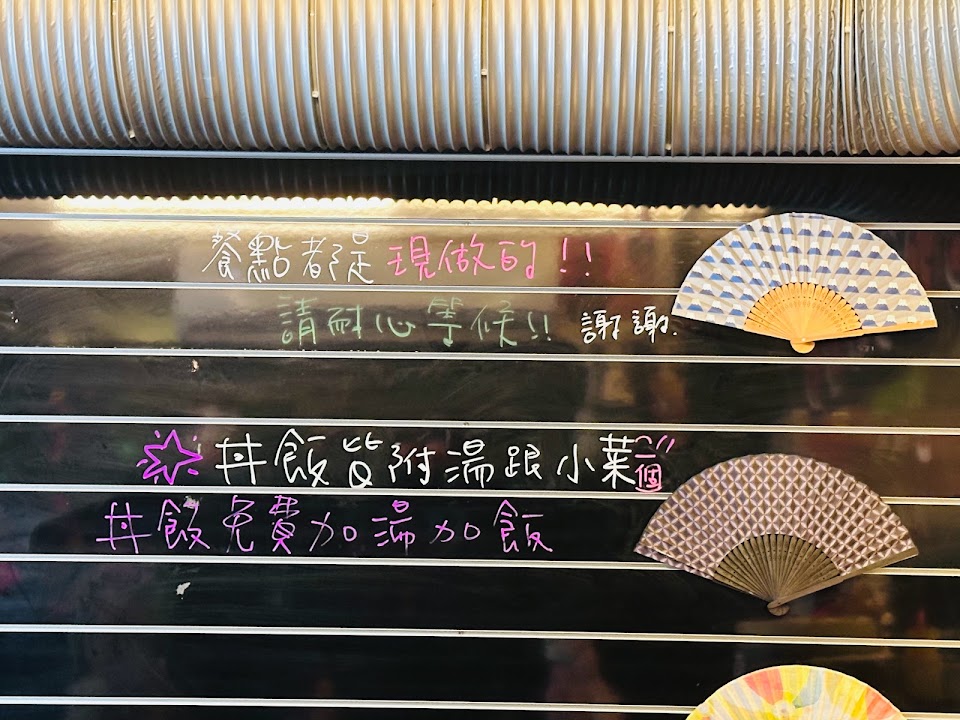 餐點都是現做的!!
請耐心等候!! 謝謝.
丼飯皆附湯跟小菜二個
丼飯免費加湯加飯